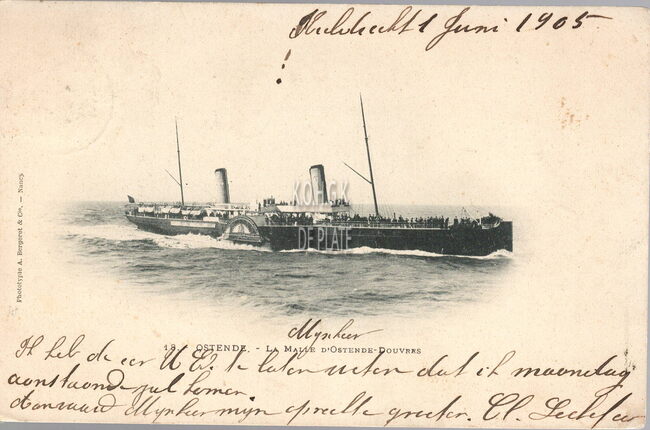 1 Juni 1905
KOH.GK
DEPLATE
Phototypie A. Bergeret & Cie. — Nancy
18. OSTENDE. - LA MALLE D'OSTENDE-DOUVRES
Mynheer
Ik heb de eer U Ed. te laten weten dat ik maandag
aanstaande zal komen.
Aanvaard Mynheer myn oprechte groeten. Cl.